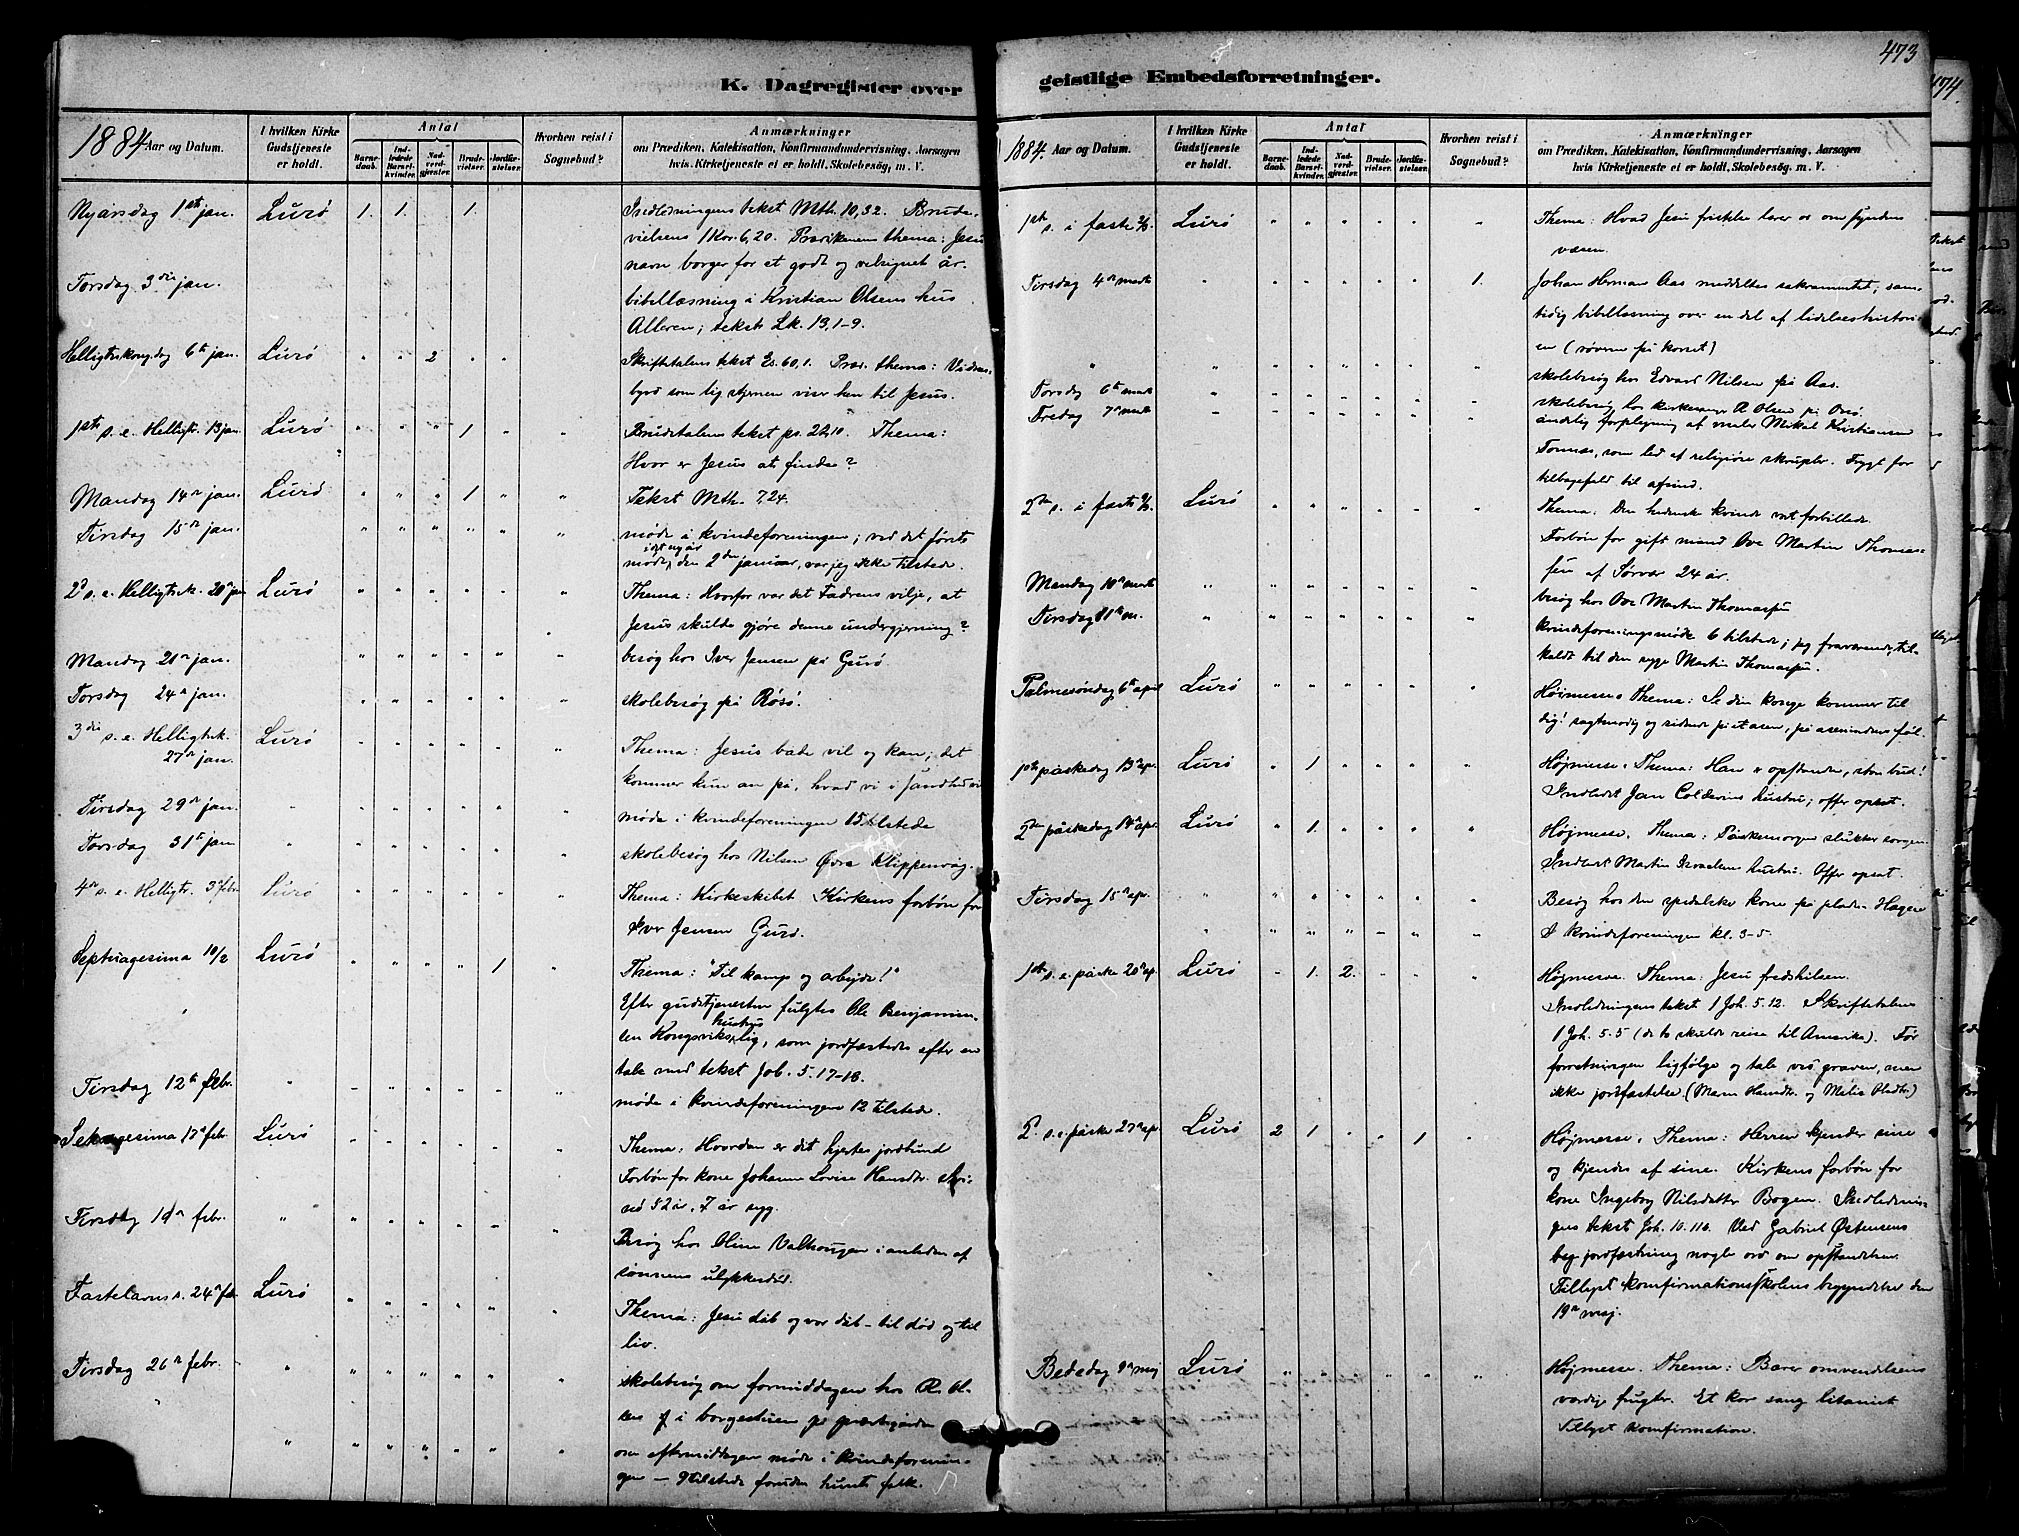 473
474.
K. Dagregister over geistlige Embedsforretninger.
1884 Aar og Datum.
I hvilken Kirke Gudstjeneste er holdt.
Antal
Barnedaab.
Indledede Barselkvinder.
Nadverdgjester.
Brudevielser.
Jordfæstelser.
Hvorhen reist i Sognebud?
Anmærkninger
om Prædiken, Katekisation, Konfirmandundervisning, Aarsagen
hvis Kirketjeneste ei er holdt, Skolebesög, m. V.
Nyårsdag 1ste jan. Lurö 1. 1. 1. Indledningens tekst Mth. 10,32. Brude-
vielsens 1 Kor. 6,20. Prædikenens thema: Jesu
navn borger for et godt og velsignet år.
Torsdag 3die jan. bibellæsning i Kristian Olsens hus
Alleren; tekst Lk. 13,1-9.
Helligtrekong.dag 6te jan. Lurö " " 2 " " Skriftetalens tekst Es. 60,1. Præ. thema: Vidnes-
byrd som lig stjernen viser hen til Jesus.
1ste s. e. Helligtr. 13 jan. Lurö " " " 1 " Brudetalens tekst ps. Thema:
Hvor er Jesus at finde?
Mandag 14de jan. Lurö " " " 1 " " Tekst Mth. 7,24.
Tirsdag 15de jan. møde i kvindeforeningen; ved det første
i det nyår
møde, den 2den januar, var jeg ikke tilstede.
2d s. e. Helligtrek. 20de jan Lurö Thema: Hvorfor var det Fadrens vilje, at
Jesus skulde gjöre denne undergjerning?
Mandag 21de jan. besøg hos Iver Jensen på Gurö.
Torsdag 24de jan. skolebesøg på Røsö.
3die s. e. Helligtrek. Lurö
27de jan. Thema: Jesus både vil og kan; det
kommer kun an på, hvad vi i sandhed vil
Tirsdag 29de jan. møde i kvindeforeningen 15 tilstede
Torsdag 31te jan skolebesøg hos Nilsen Øvre Klippenvåg.
4de s. e. Helligtr. 3 febr Lurö Thema: Kirkeskibet Kirkens forbön for
Iver Jensen Gurö.
Septuagesima 10/2 Lurö " " " " 1 " Thema: "Til kamp og arbejde!"
Efter gudstjenesten fulgtes Ole Benjamin-
sen Kongsviks hustrus lig, som jordfæstedes efter en
tale med tekst Job. 5.17-18.
Tirsdag 12te febr. møde i kvindeforeningen 12 tilstede.
Seksagesima 17de febr. Lurö Thema: Hvordan er dit hjertes jordbund
Forbön for kone Johanne Lovise Hansdtr.
52 år, 7 år syg.
Tirsdag 19de febr. Besøg hos Oline Valhaugen i anledn. af
sønnens ulykkesdød.
Fastelavns s. 24de feb. Lurö Thema: Jesu dåb og vor dåb - til död og til
liv.
Tirsdag 26de febr. skolebesøg om formiddagen hos R. Ol-
sen i borgestuen på præstegården
om eftermiddagen møde i kvindeforenin-
gen - 9 tilstede foruden husets folk.
1884. Aar og Datum.
I hvilken Kirke Gudstjeneste er holdt.
Antal
Barnedaab.
Indledede Barselkvinder.
Nadverdgjester.
Brudevielser.
Jordfæstelser.
Hvorhen reist i Sognebud?
Anmærkninger
om Prædiken, Katekisation, Konfirmandundervisning, Aarsagen
hvis Kirketjeneste ei er holdt, Skolebesög, m. V.
1ste s. i faste 2/3. Lurö Thema: Hvad Jesu fristelse lærer os om syndens
væsen.
Tirsdag 4de marts 1. Johan Herman Aas meddeltes sakramentet; sam-
tidig bibellæsning over en del af lidelseshistori-
en (røveren på korset)
skolebesøg hos Edvard Nilsen på Aas.
Torsdag 6te marts skolebesøg hos kirkesanger A Olsen på Onö.
Fredag 7de marts åndelig forplejning af maler Mikal Kristiansen
Tonnes, som led af religiöse skrupler. Frygt for
tilbagefald til afsind.
2den s. i faste 9/3. Lurö Thema: Den hedenske kvinde vort forbillede.
Forbön for gift mand Ove Martin Thomas-
sen af Sørvær 24 år.
Mandag 10de marts besøg hos Ove Martin Thomassen
Tirsdag 11te m. kvindeforeningsmøde 6 tilstede; jeg fraværende, til-
kaldt til den syge Martin Thomassen.
Palmesöndag 6te april Lurö Højmesse Thema: Se din konge kommer til
dig! sagtmodig og ridende på et asen, på aseninens føl.
1ste påskedag 13de apr. Lurö " 1 Højmesse. Thema: Han er opstanden, stor bud!
Indledt Jan hustru; offer opsat.
2den påskedag 14de apr. Lurö " 1. Højmesse. Thema: Påskemorgen slukker sorgen
Indledt Martin Israelsens hustru. Offer opsat.
Tirsdag 15de apr. Besøg hos den spedalske kone på pladsen Hagen
I kvindeforeningen kl. 3-5.
1ste s. e. påske 20de ap. Lurö - 1. 2. Højmesse. Thema: Jesu fredshilsen.
Indledningens tekst 1 Joh. 5.12. Skriftetalens
1 Joh. 5.5 (de to skulde reise til Amerika). Før
forretningen ligfølge og tale ved graven, men
ikke jordfæstelse. (Maren Hansdtr. og )
2. s. e. påske 27de ap. Lurö 2 1 " " 1 Højmesse. Thema: Herren kjender sine
og kjendes af sine. Kirkens forbön for
kone Ingeborg Nilsdatter Bogen. Indlednin-
gens tekst Joh. 10. Ved Gabriel Østensens
jordfæstning nogle ord om opstandelsen.
Tillyst konfirmationsskolens begyndelse den
19de maj.
Bededag 9de maj Lurö Højmesse. Thema: Bærer omvendelsens
værdige frugter. Et kor sang litaniet
Tillyst konfirmation.